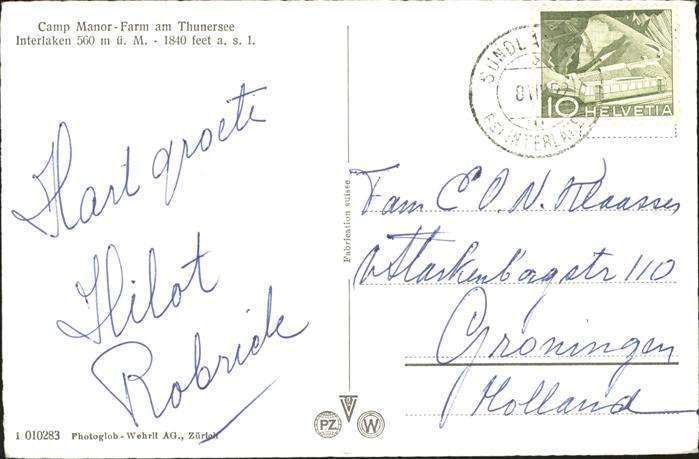 Camp Manor-Farm am Thunersee
Interlaken 560 m ü. M. - 1840 feet a. s. l.
Hart groete
Hilot
Robride
1 010283 Photoglob-Wehrli AG., Zürich
Fabrication suisse
PZ
W
10 HELVETIA
Fam E O. N. Klaassen
v Starkenborgstr 110
Groningen
Holland